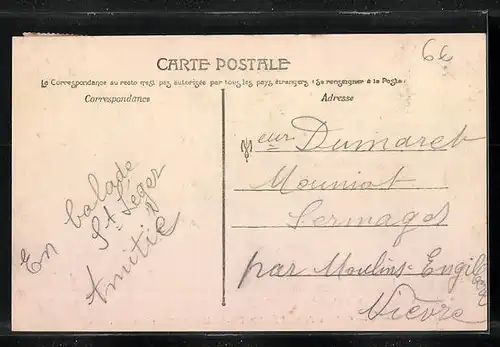 66
CARTE POSTALE
La Correspondance au recto n'est pas autorisée par tous les pays étrangers (Se renseigner à la Poste)
Correspondance
Adresse
En balade
St Léger
Amitié
Meur Dumarch
Mouniot
Sermages
par Moulins-Engilbert
Nièvre